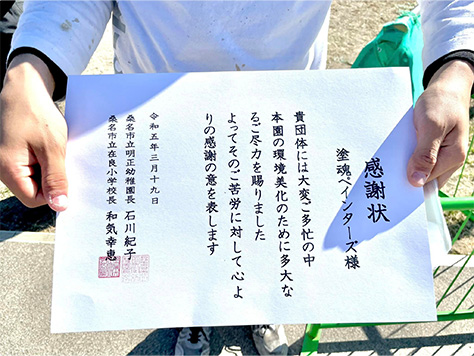 感謝状
塗魂ペインターズ様
貴団体には大変ご多忙の中
本園の環境美化のために多大な
るご尽力を賜りました
よってそのご苦労に対して心よ
りの感謝の意を表します
令和五年三月十九日
桑名市立明正幼稚園長 石川紀子
桑名市立在良小学校長 和気幸恵